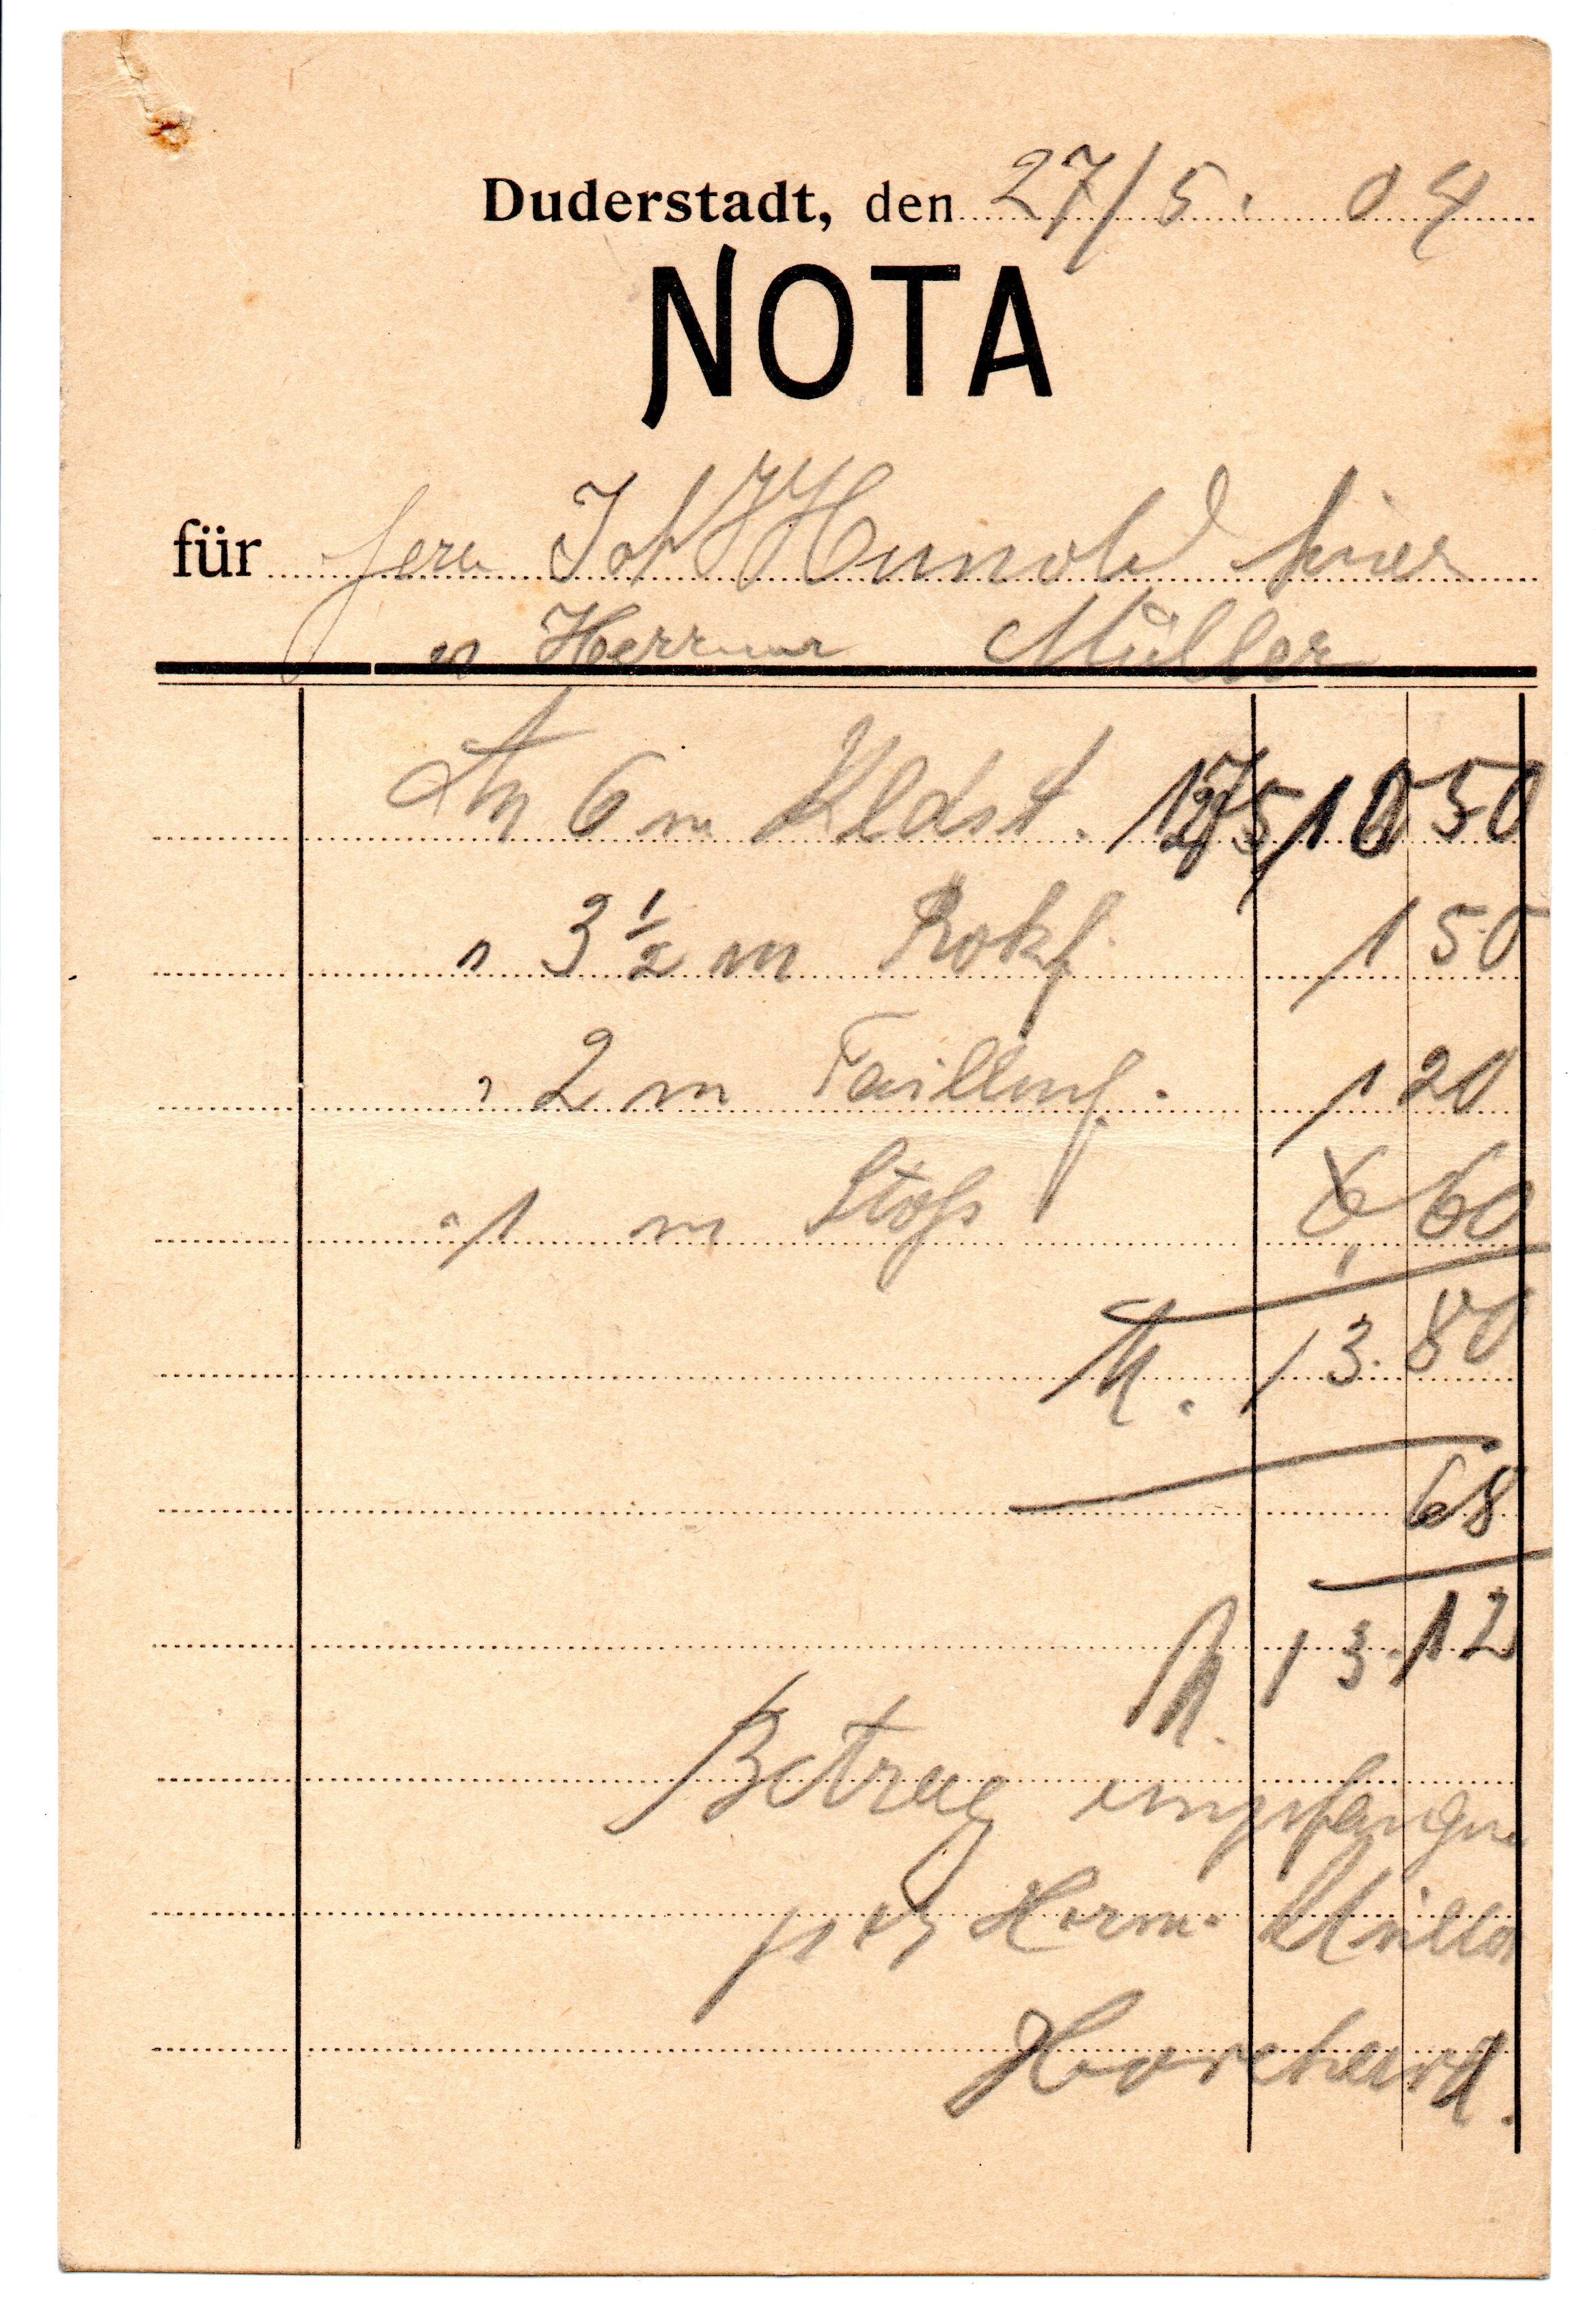 Duderstadt, den 27/5. 04
NOTA
für Herrn Joh Hunold hier
n Hermann Müller
An 6 m Kldst. 175 10 50
" 3 1/2 m Rokf. 1 50
" 2 m Taillenf. 1 20
" 1 m Stoß 60
M. 13.80
68
M. 13.12
Betrag empfangen
per Herm. Müller
Borchard.